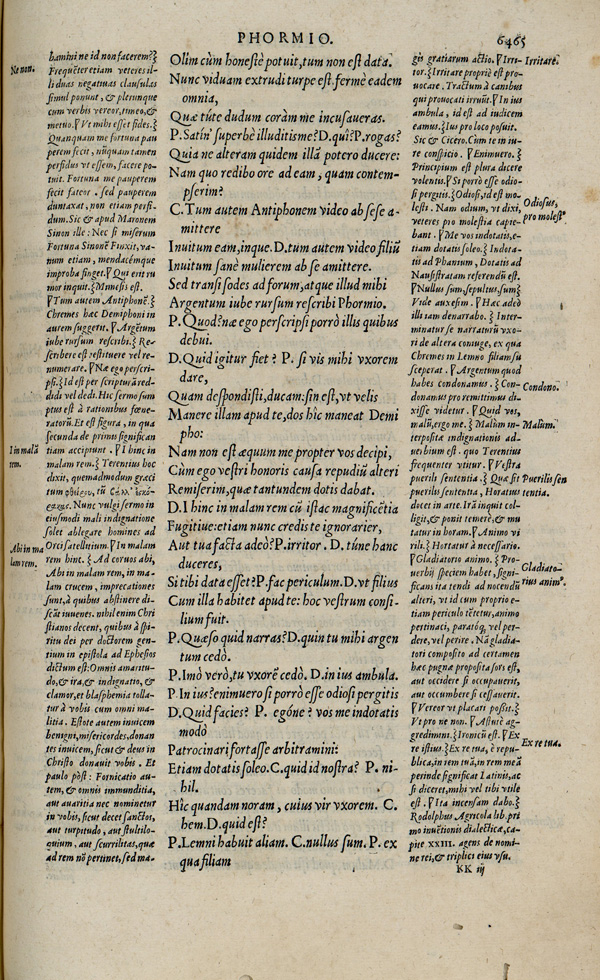 PHORMIO.
6465
Ne non.
I in malā
rem.
Abi in ma
lam rem.
hamini ne id non facerem?⁆
Frequēter etiam veteres il-
li duas negatiuas clausulas
simul ponunt, & plerunque
cum verbis vereor, timeo, &
metuo.
Quanquam me fortuna pau
perem fecit, nūquam tamen
perfidus vt essem, facere po-
tuit. Fortuna me pauperem
fecit fateor . sed pauperem
duntaxat, non etiam perfi-
dum. Sic & apud Maronem
Sinon ille : Nec si miserum
Fortuna Sinonē Finxit, va-
num etiam, mendacémque
improba finget.
mor inquit.
Tum autem Antiphonē.
Chremes hæc Demiphoni in
aurem suggerit.
iube rursum rescribi.
scribere est restituere vel re-
numerare.
Id est per scripturā red-
didi vel dedi. Hic sermo sum
ptus est à rationibus fœne-
ratorū. Et est figura, in qua
secunda de primis significan
tiam accipiunt .
malam rem. Terentius hoc
dixit, quemadmodum græci
Nunc vulgi sermo in
eiusmodi mali indignatione
solet ablegare homines ad
Orci satellitium. In malam
rem hinc . Ad coruos abi,
Abi in malam rem, in ma-
lam crucem, imprecationes
sunt, à quibus abstinere di-
scāt iuuenes. nihil enim Chri
stianos decent, quibus à spi-
ritu dei per doctorem gen-
tium in epistola ad Ephesios
dictum est: Omnis amaritu-
do, & ira, & indignatio, &
clamor, et blasphemia tolla-
tur à vobis cum omni ma-
litia . Estote autem inuicem
benigni, misericordes, donan
tes inuicem, sicut & deus in
Christo donauit vobis . Et
paulo pòst : Fornicatio au-
tem, & omnis immunditia,
aut auaritia nec nominetur
in vobis, sicut decet sanctos,
aut turpitudo, aut stultilo-
quium, aut scurrilitas, quæ
ad rem nō pertinet, sed ma-
Olim cùm honestè potuit, tum non est data.
Nunc viduam extrudi turpe est. fermè eadem
omnia,
Quæ túte dudum coràm me incusaueras.
P. Satín' superbè illuditis me? D. quî? P. rogas?
Quia ne alteram quidem illā potero ducere:
Nam quo redibo ore ad eam, quam contem-
pserim?
C. Tum autem Antiphonem video ab sese a-
mittere
Inuitum eam, inque. D. tum autem video filiū
Inuitum sanè mulierem ab se amittere.
Sed transi sodes ad forum, atque illud mihi
Argentum iube rursum rescribi Phormio.
P. Quod? næ ego perscripsi porrò illis quibus
debui.
D. Quid igitur fiet ? P. si vis mihi vxorem
dare,
Quam despondisti, ducam: sin est, vt velis
Manere illam apud te, dos hîc maneat Demi
pho:
Nam non est æquum me propter vos decipi,
Cùm ego vestri honoris causa repudiū alteri
Remiserim, quæ tantundem dotis dabat.
D. I hinc in malam rem cū istac magnificētia
Fugitiue: etiam nunc credis te ignorarier,
Aut tua facta adeò? P. irritor . D. túne hanc
duceres,
Si tibi data esset? P. fac periculum. D. vt filius
Cum illa habitet apud te: hoc vestrum consi-
lium fuit.
P. Quæso quid narras? D. quin tu mihi argen
tum cedò.
P. Imò verò, tu vxorē cedò. D. in ius ambula.
P. In ius? enimuero si porrò esse odiosi pergitis
D. Quid facies? P. egóne ? vos me indotatis
modò
Patrocinari fortasse arbitramini:
Etiam dotatis soleo. C. quid id nostra? P. ni-
hil.
Hîc quandam noram, cuius vir vxorem. C.
hem. D. quid est?
P. Lemni habuit aliam. C. nullus sum. P. ex
qua filiam
gis gratiarum actio.
tor. Irritare propriè est pro-
uocare . Tractum à canibus
qui prouocati irruūt.
ambula , id est ad iudicem
eamus. Ius pro loco posuit.
Sic & Cicero. Cum te in iu-
re conspicio . Enimuero.
Principium est plura dicere
volentis. Si porrò esse odio-
si pergitis. Odiosi, id est mo-
lesti . Nam odium, vt dixi,
veteres pro molestia capie-
bant . Me vos indotatis, e-
tiam dotatis soleo. Indota-
tis ad Phanium , Dotatis ad
Nausistratam referendū est.
Nullus sum, sepultus, sum
Vide auxesim . Hæc adeò
illi iam denarrabo. Inter-
minatur se narraturū vxo-
ri de altera coniuge, ex qua
Chremes in Lemno filiam su
sceperat .
habes condonamus . Con-
donamus pro remittimus di-
xisse videtur . Quid vos,
malū, ergo me. Malum in-
terpositæ indignationis ad-
uerbium est . quo Terentius
frequenter vtitur .
puerili sententia.
puerili sententia, Horatius
docet in arte. Irā inquit col-
ligit, & ponit temerè, & mu
tatur in horam. Animo vi
rili. Hortatur à necessario.
Gladiatorio animo.
uerbij speciem habet, signi-
ficans ita tendi ad nocendū
alteri, vt id cum proprio e-
tiam periculo tētetur, animo
pertinaci, paratóq, vel per-
dere, vel perire . Nā gladia-
tori composito ad certamen
hæc pugnæ proposita sors est,
aut occidere si occupauerit,
aut occumbere si cessauerit.
Vereor vt placari possit.
Vt pro ne non. Astutè ag-
gredimini. Ironicū est. Ex
re istius. Ex re tua, è repu-
blica, in rem tuā, in rem meā
perinde significat Latinis, ac
si diceret, mihi vel tibi vtile
est . Ita incensam dabo.
Rodolphus Agricola lib. pri
mo inuētionis dialecticæ, ca-
pite XXIII. agens de nomi-
ne rei, & triplici eius vsu.
KK iij
Irritare.
Odiosus,
pro molest⁹.
Condono.
Malum.
Puerilis sen
tentia.
Gladiato-
rius anim⁹.
Ex re tua.